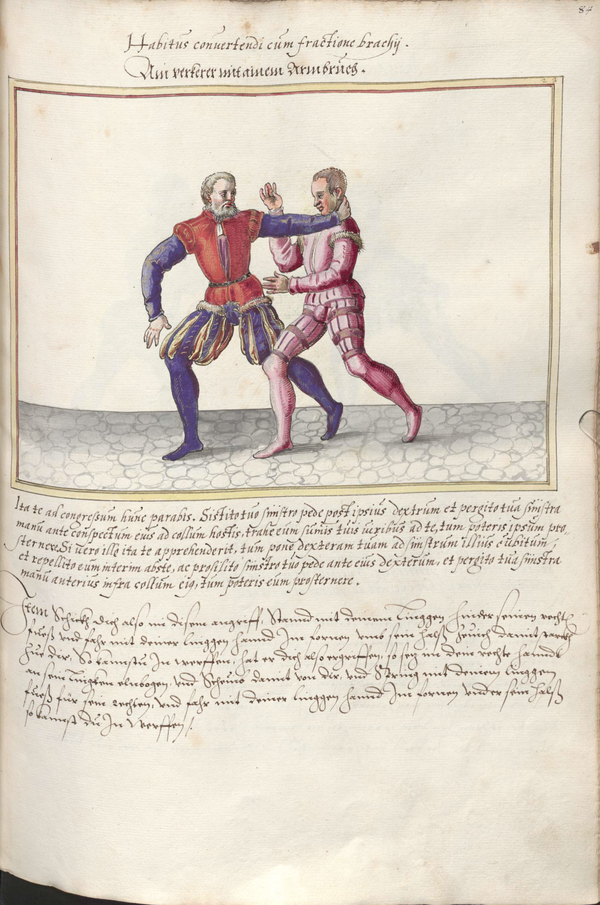 84
Habitus convertendi cum fractione brachij.
Ain verkerer mit ainem Armbruch.
Ita te ad congressum hunc parabis. Sistito tuo sinistro pede post ipsius dextrum et pergito tua sinistra
manu ante conspectum eius ad collum hostis, trahe eum sumis tuis viribus ad te, tum poteris ipsum pro,
sternere. Si uero ille ita te apprehenderit, tum pone dexteram tuam ad sinistrum illius cubitum,
et repellito eum interim abs te, ac prosilito sinistro tuo pede ante eius dexterum, et pergito tua sinistra
manu anterius infra collum eius, tum poteris eum prosternere.
Item Schickh dich also in disem angriff, Stannd mit deinem Linggen hinder seinen rechten
fuoß vnd fahr mit deiner linggen hannd Im fornen vmb sein halß Zeuch damit
zuo dir, So kanstu In werffen, hat er dich also ergriffen, so setz im dein rechte hanndt
an sein Lingken elnbogen, vnd Scheub damit von dir vnd Spring mit deinem Linggen
fuoß für sein rechten, vnd fahr mit deiner linggen hannd Im fornen vnder sein halß
so kannst du In werffen.